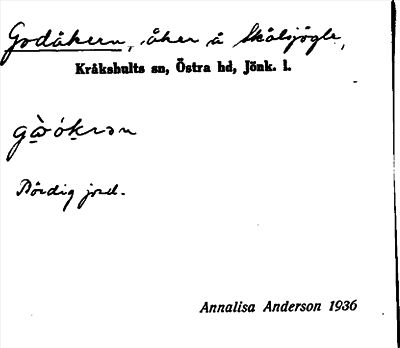 Godåkern, åker å Skålsjögle,
Kråkshults sn, Östra hd, Jönk. l.
Bördig jord.
Annalisa Anderson 1936